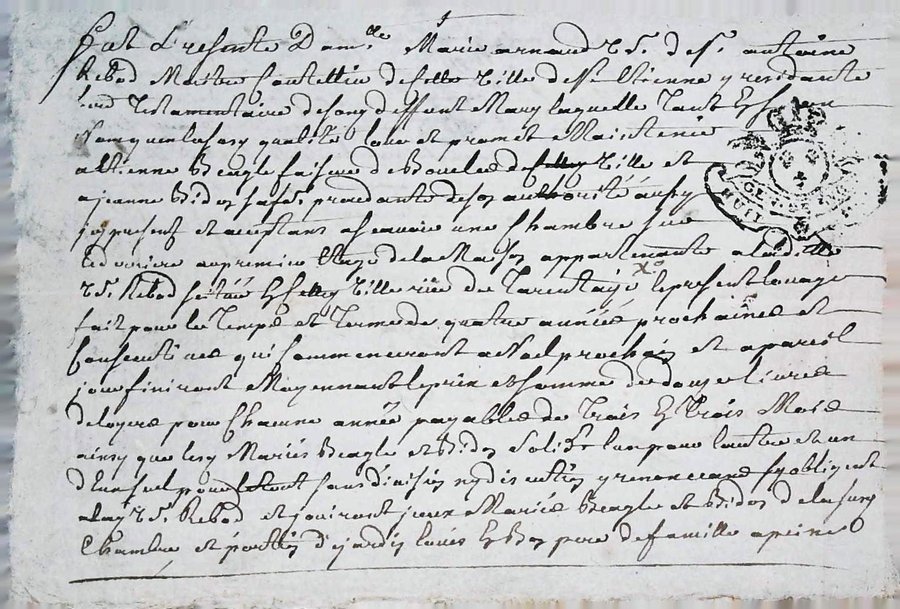 fut presente Dam.lle Marie arnaud V.e de S.r antoine
Rebod Maitre Coutellier de cette Ville de S.t Etienne y residante
testamentaire de son deffunt Mary laquelle tant en son
nom qu'en lasusd qualité loue et promet Maintenir
a Etienne Beagle faiseur de Boucles de cette Ville et
a jeanne Bidos sa fe. procedante de son authorité aussy
icy present et acceptans ascavoir une Chambre sur
le derriere au premier Etage de la Maison appartenante a lad. D.lle
V.e Rebod scituée En cette Ville rüe de Tarentaize le present louage
fait pour le Temps et Terme de quatre années prochaines et
Consecutives qui Commenceront a Noel prochain et a pareil
jour finiront Moyennant le prix et somme de douze livres
de loyers pour Chacune année payables de Trois En Trois Mois
ainsy que lesd Mariés Beagle et Bidos Solid.t l'un pour l'autre et un
d'Eux seul pour le tout sans division ny discution y renoncans s'y obligent
a lad V.e Rebod et jouiront iceux Mariés Beagle et Bidos de la susd
Chambre et portion de jardin loués En Bon pere de famille a peine
GE
HUIT